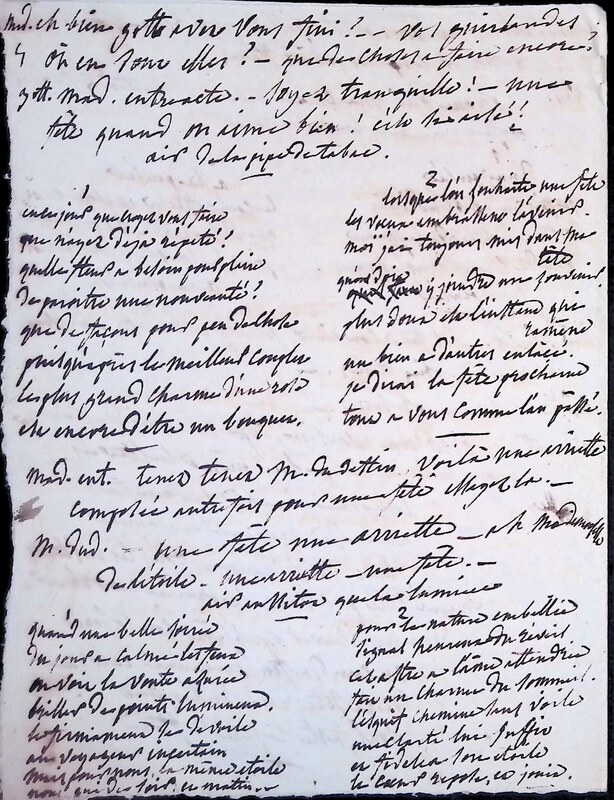 mad. eh bien gotte avez vous fini? — vos guirlandes
où en sont elles? — que de choses a faire encore?
gott. mad. entracte. — soyez tranquille! — une
fête quand on aime bien! cela
air de la pipe de tabac.
1
en ce jour que croyez vous faire
que n'ayez deja répété?
quelle fleur a besoin pour plaire
de paroitre une nouveauté?
que de façons pour peu de chose
puisqu'après le meilleur couplet
le plus grand charme d'une rose
est encore d'être un bouquet.
2
lorsque l'on souhaite une fête
les vœux embrassent l'avenir.
moi j'ai toujours mis dans ma
tête
y joindre un souvenir
plus doux est l'instant qui
ramène
un bien a d'autres enlacé.
je dirai la fête prochaine
tout a vous comme l'an passé.
mad. ent. tenez tenez M. voilà une ariette
composée autrefois pour une fête —
M. dud. — une fête une ariette — ah mademoiselle
de l'étoile — une ariette — une fête. —
air aussitot que la lumiere
quand une belle soirée
du jour a calmé les feux
on voit la voute azurée
briller de points lumineux.
le firmament se dévoile
au voyageur incertain
mais pour nous, la même étoile
luit du soir, au matin. —
2
pour la nature embellie
signal heureux du réveil
cet astre a l'âme attendrie
fait un charme du sommeil.
l'esquif chemine sans voile
une clarté lui suffit
et fidele a son étoile
le cœur repose, et jouit.